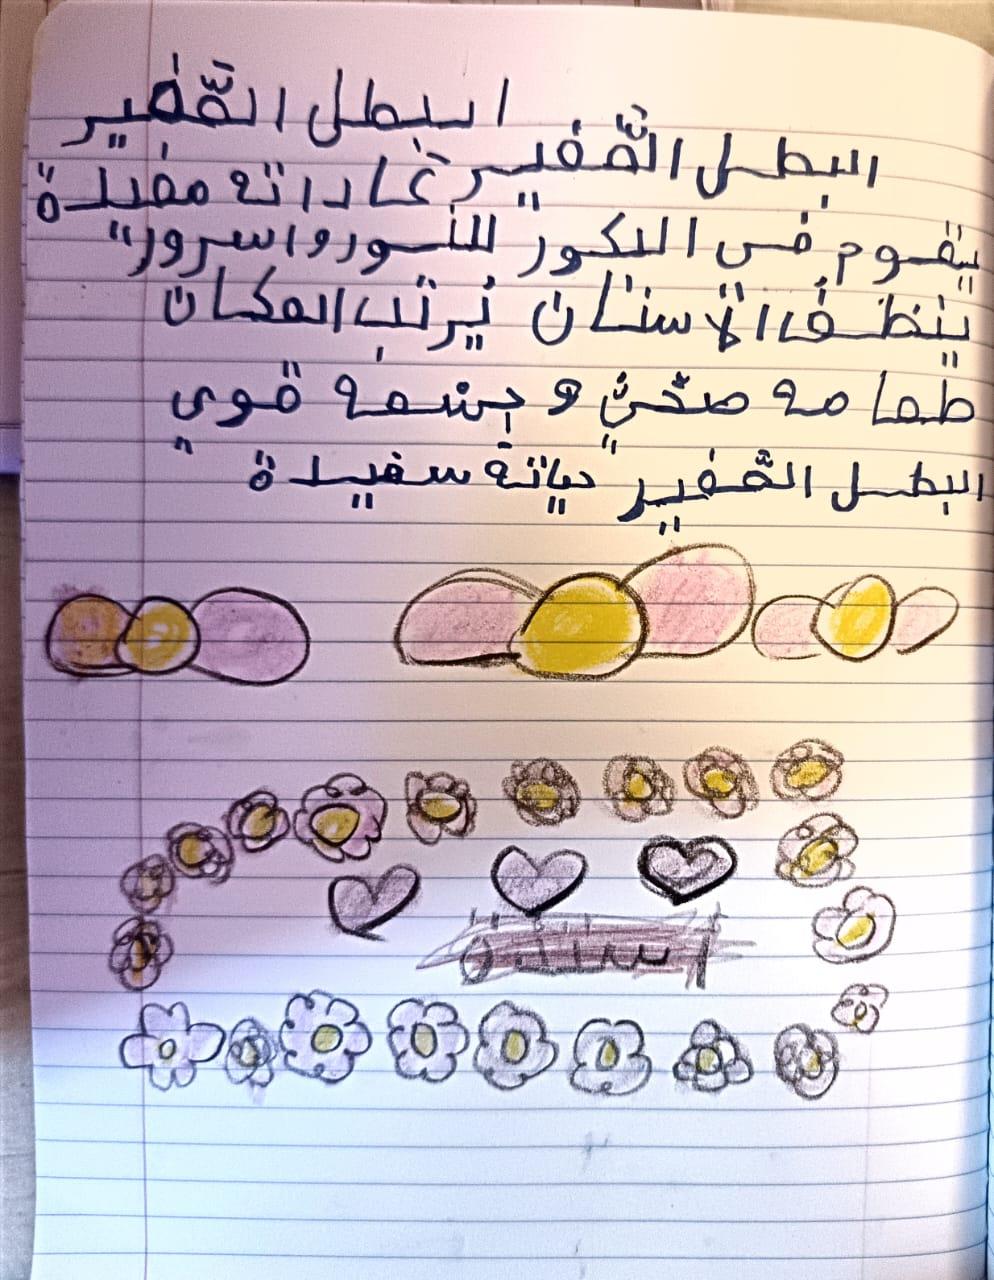 البطل الصّغير
البطل الصّغير عاداته مفيدة
يقوم في البكور للنور والسرور
ينظف الأسنان يُرتب المكان
طعامه صحّيّ و جسمه قوي
البطل الصّغير حياته سعيدة